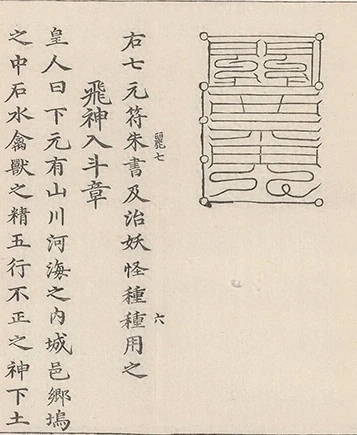 右七元符朱書及治妖怪種種用之
麗七 六
飛神入斗章
皇人曰下元有山川河海之內城邑鄉塢
之中石水禽獸之精五行不正之神下土